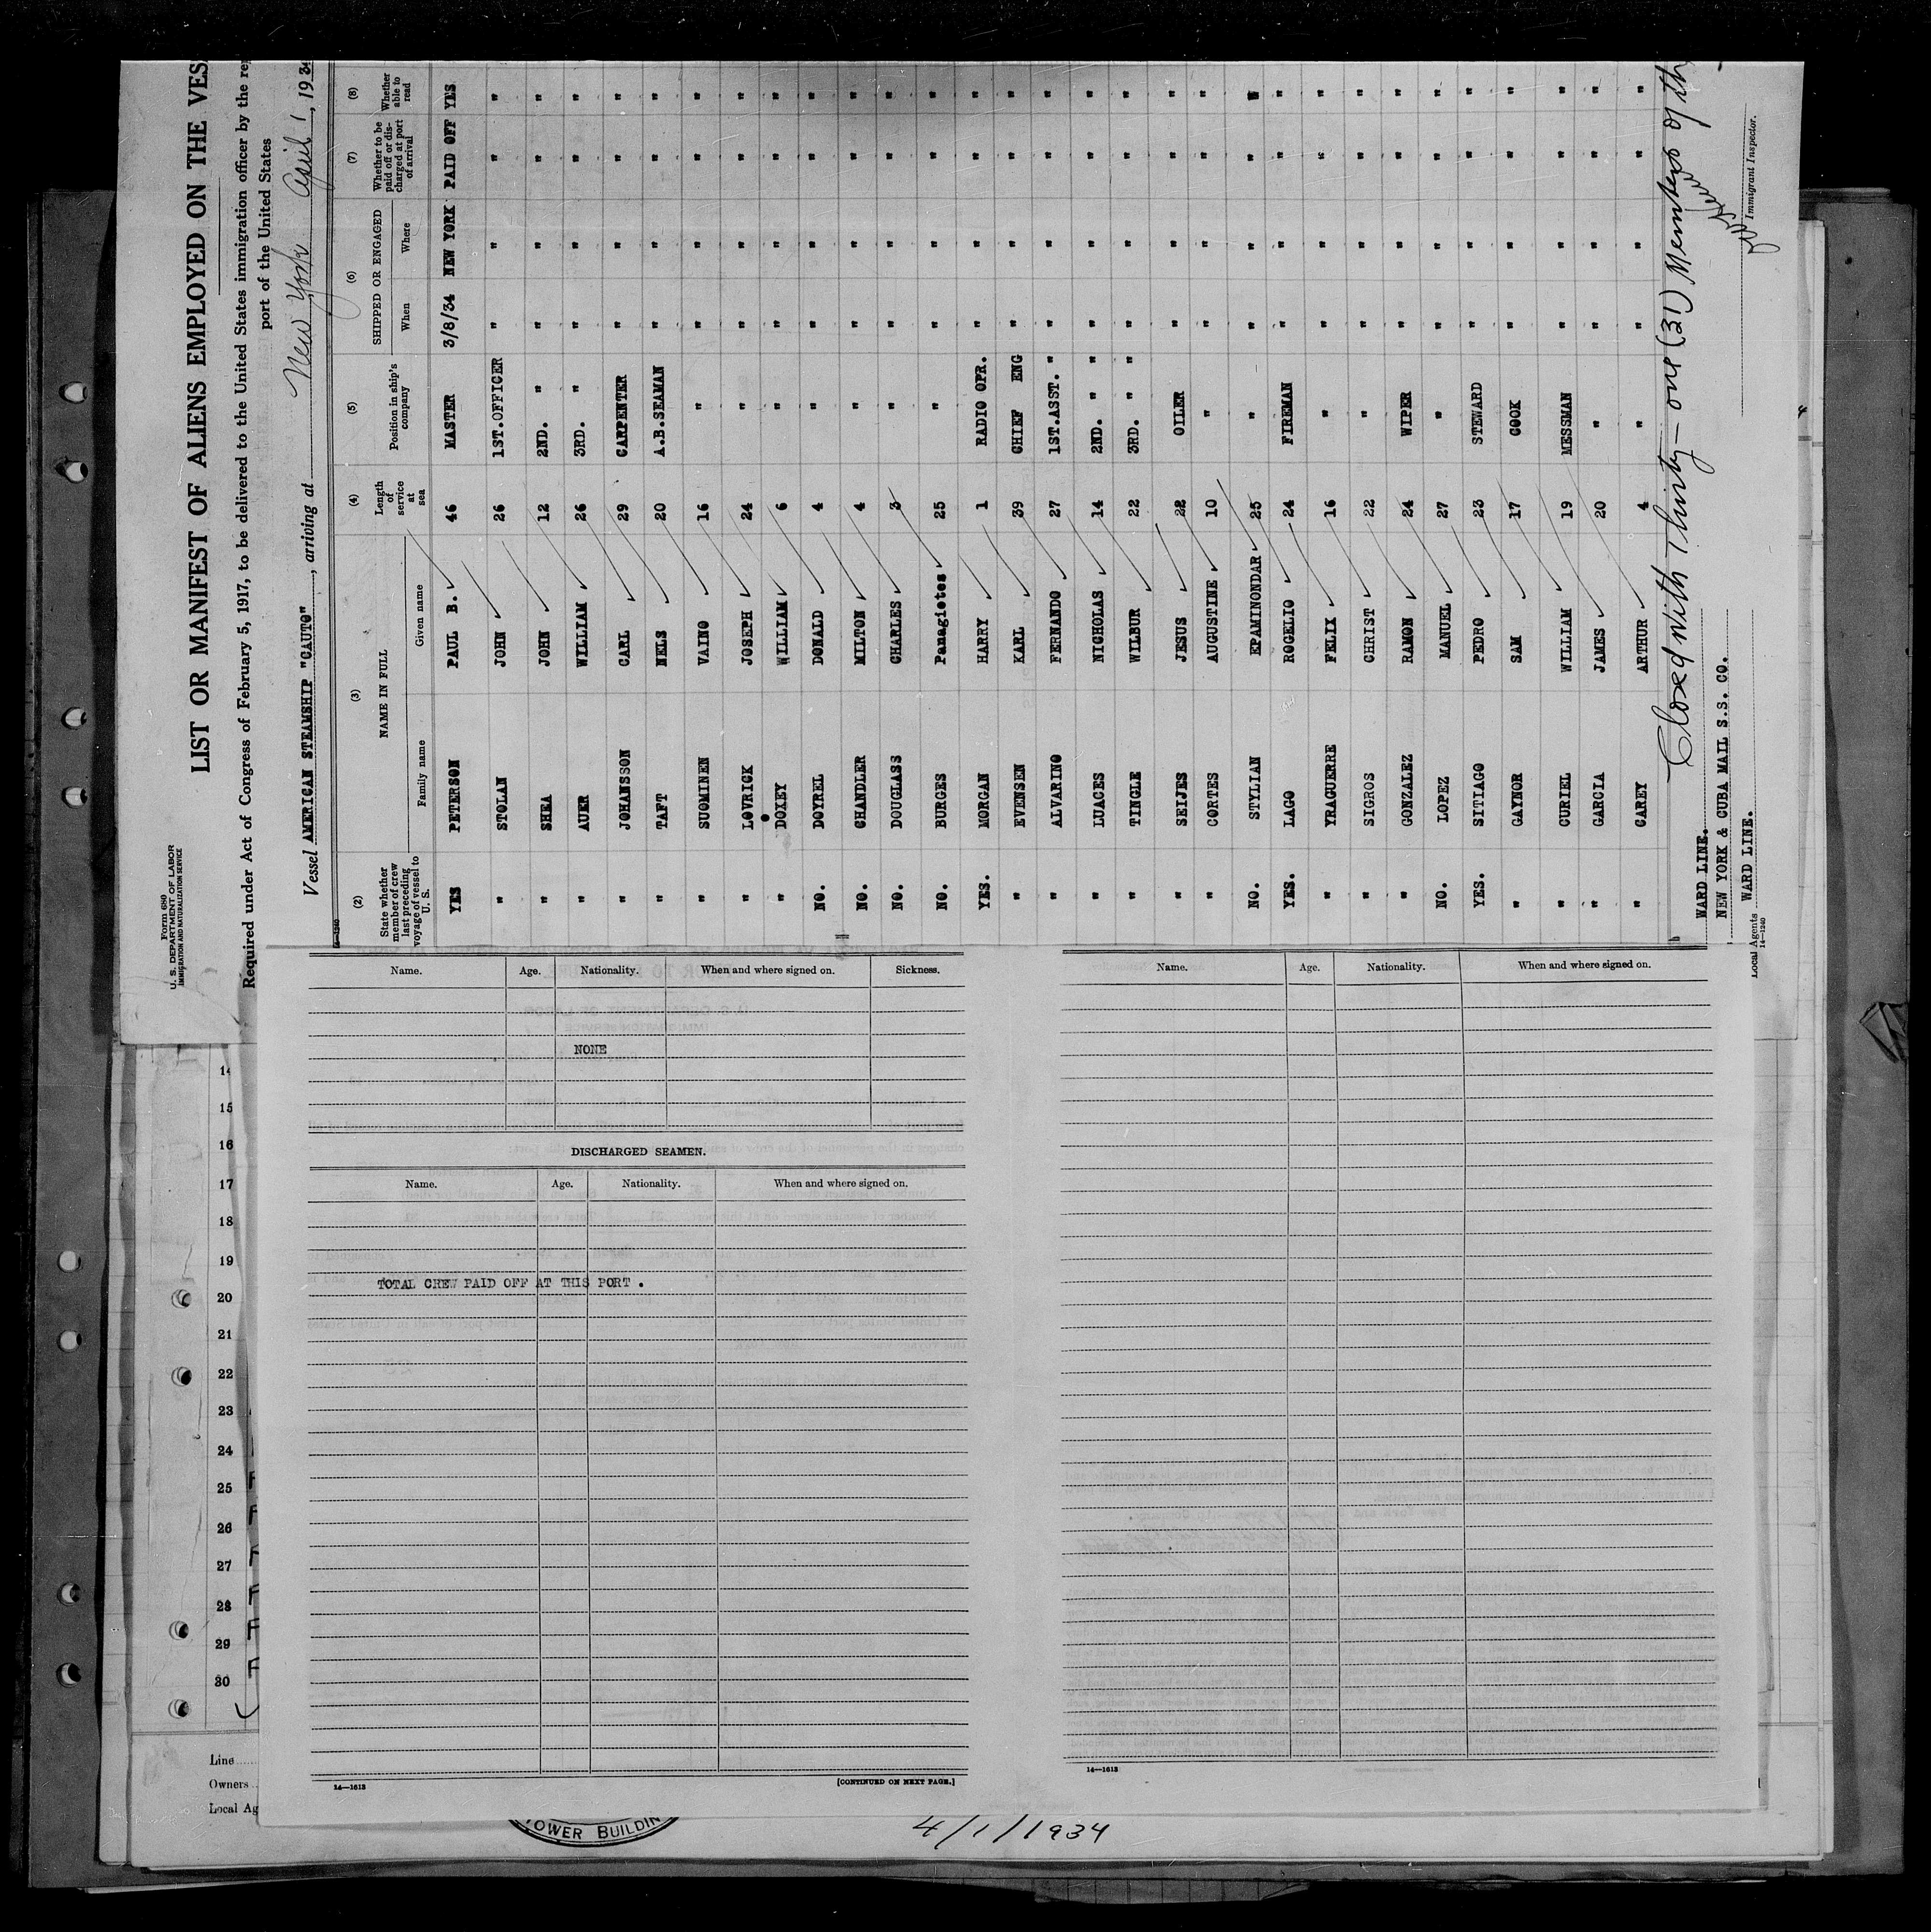 Form 680
U. S. DEPARTMENT OF LABOR
IMMIGRATION AND NATURALIZATION SERVICE
LIST OR MANIFEST OF ALIENS EMPLOYED ON THE VES
Required under Act of Congress of February 5, 1917, to be delivered to the United States immigration officer by the re
port of the United States
Vessel AMERICAN STEAMSHIP "CAUTO", arriving at New York April 1, 1934
14-1240
(2) (3) (4) (5) (6) (7) (8)
State whether member of crew last preceding voyage of vessel to U. S. NAME IN FULL Length of service at sea Position in ship's company SHIPPED OR ENGAGED Whether to be paid off or discharged at port of arrival Whether able to read
Family name Given name When Where
YES PETERSON PAUL B. 46 MASTER 3/8/34 NEW YORK PAID OFF YES
" STOLAN JOHN 26 1ST.OFFICER " " " "
" SHEA JOHN 12 2ND. " " " " "
" AUER WILLIAM 26 3RD. " " " " "
" JOHANSSON CARL 29 CARPENTER " " " "
" TAFT NELS 20 A.B.SEAMAN " " " "
" SUOMINEN VAINO 16 " " " " "
" LOVRICK JOSEPH 24 " " " " "
" DOXEY WILLIAM 6 " " " " "
NO. DOYREL DONALD 4 " " " " "
NO. CHANDLER MILTON 4 " " " " "
NO. DOUGLASS CHARLES 3 " " " " "
NO. BURGES Panagiotes 25 " " " " "
YES. MORGAN HARRY 1 RADIO OPR. " " " "
" EVENSEN KARL 39 CHIEF ENG " " " "
" ALVARINO FERNANDO 27 1ST.ASST. " " " " "
" LUACES NICHOLAS 14 2ND. " " " " " "
" TINGLE WILBUR 22 3RD. " " " " " "
" SEIJES JESUS 22 OILER " " " "
" CORTES AUGUSTINE 10 " " " " "
NO. STYLIAN EPAMINONDAR 25 " " " " "
YES. LAGO ROGELIO 24 FIREMAN " " " "
" YRAGUERRE FELIX 16 " " " " "
" SIGROS CHRIST 22 " " " " "
" GONZALEZ RAMON 24 WIPER " " " "
NO. LOPEZ MANUEL 27 " " " " "
YES. SITIAGO PEDRO 23 STEWARD " " " "
" GAYNOR SAM 17 COOK " " " "
" CURIEL WILLIAM 19 MESSMAN " " " "
" GARCIA JAMES 20 " " " " "
" CAREY ARTHUR 4 " " " " "
Closed with Thirty-one (31) Members of th
WARD LINE.
NEW YORK & CUBA MAIL S.S. CO.
Local Agents WARD LINE.
14-1240
Immigrant Inspector.
Name. Age. Nationality. When and where signed on. Sickness.
NONE
DISCHARGED SEAMEN.
Name. Age. Nationality. When and where signed on.
TOTAL CREW PAID OFF AT THIS PORT .
14-1613
[CONTINUED ON NEXT PAGE.]
Name. Age. Nationality. When and where signed on.
14-1613
14
15
16
17
18
19
20
21
22
23
24
25
26
27
28
29
30
Line
Owners
Local Ag
OWER BUILDIN
4/1/1934